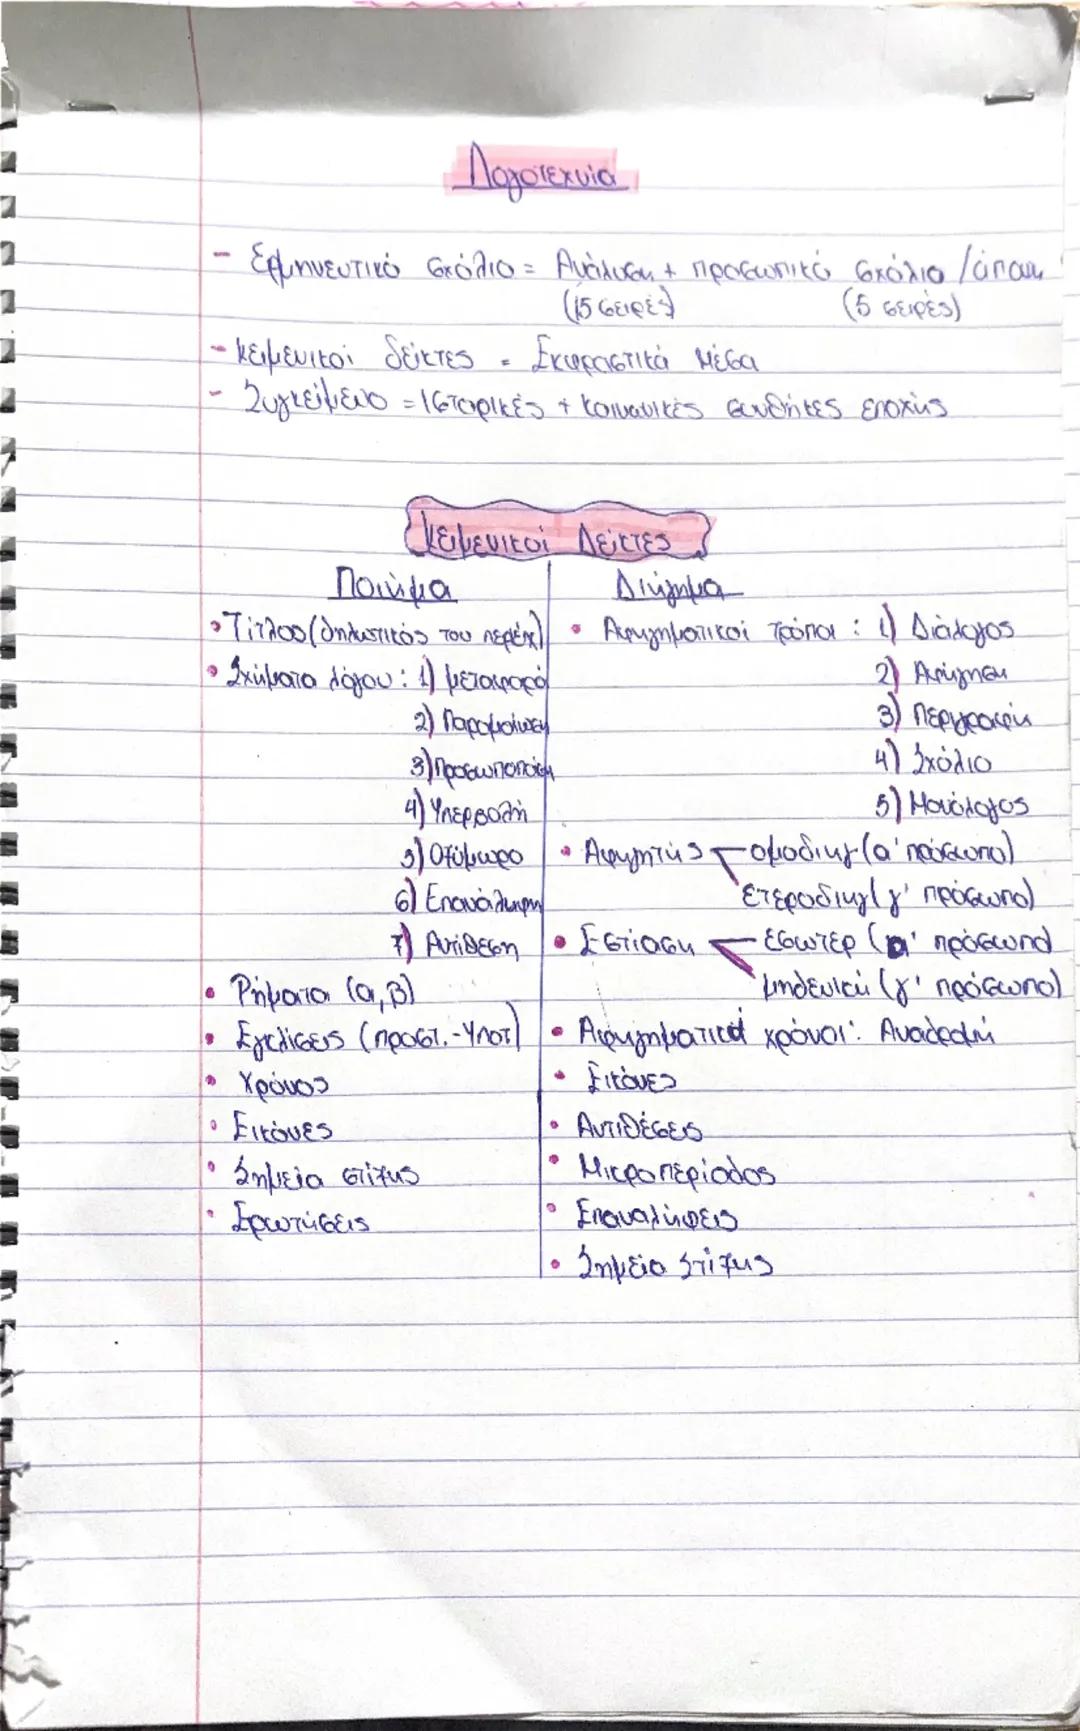 Λογοτεχνία
- Ερμηνευτικό σχόλιο = Ανάλυση + προσωπικό σχόλιο / άποψη
(15 σειρές) (5 σειρές)
- Κειμενικοί δείκτες = Εκφραστικά μέσα
- Συγκείμενο = Ιστορικές + κοινωνικές συνθήκες εποχής
Κειμενικοί Δείκτες
Ποιήμα
• Τίτλος (δηλωτικός του περιέχ)
• Σχήματα λόγου: 1) μεταφορά
2) Παρομοίωση
3) Προσωποποίηση
4) Υπερβολή
5) Οξύμωρο
6) Επανάληψη
7) Αντίθεση
• Ρήματα (α, β)
• Εγκλίσεις (προστ. - Υποτ)
• Χρόνος
• Εικόνες
• Σημεία στίξης
• Ερωτήσεις
Διήγημα
• Αφηγηματικοί τρόποι: 1) Διάλογος
2) Αφήγηση
3) Περιγραφή
4) Σχόλιο
5) Μονόλογος
• Αφηγητής ομοδιηγ (α' πρόσωπο)
ετεροδιηγ (γ' πρόσωπο)
• Εστίαση εσωτερ (α' πρόσωπο)
μηδενική (γ' πρόσωπο)
• Αφηγηματικοί χρόνοι: Αναδρομή
• Εικόνες
• Αντιθέσεις
• Μικροπερίοδος
• Επαναλήψεις
• Σημεία Στίξης